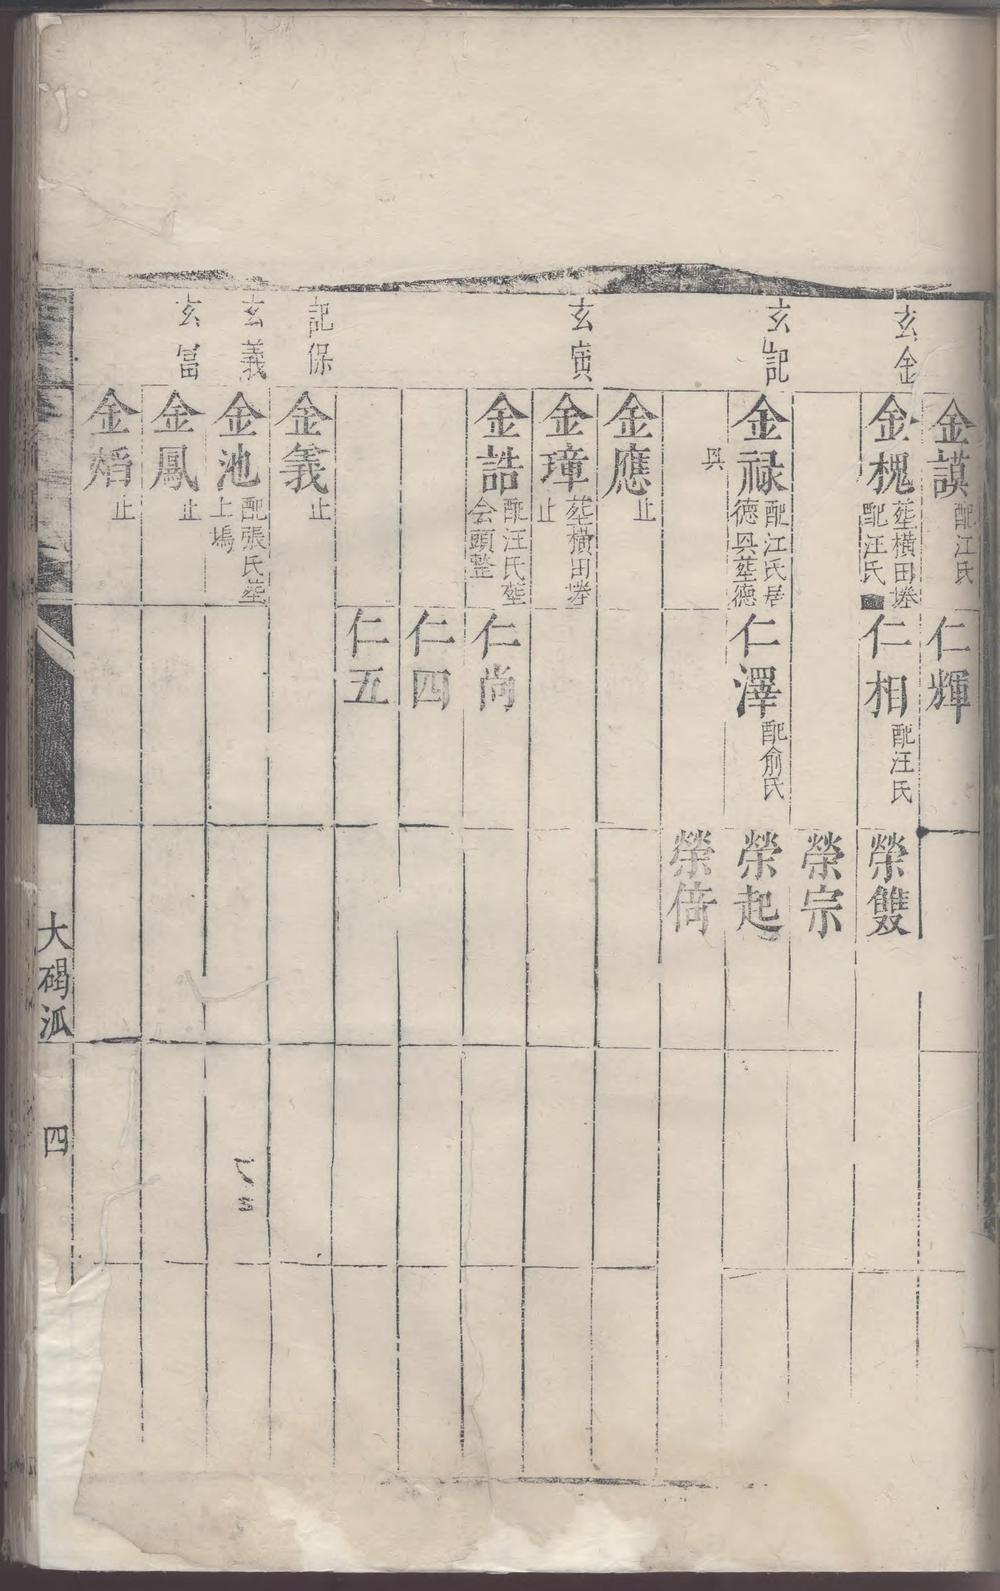 金謨配江氏
仁輝
玄金
金槐塟橫田塝配汪氏
仁相配汪氏
榮雙
榮宗
玄記
金祿配江氏居德興塟德
仁澤配俞氏
榮起
興
榮倚
金應止
玄寅
金璋塟橫田塝止
金誥配汪氏塟会頭整
仁尚
仁四
仁五
記保
金義止
玄義
金池配張氏塟上塢
玄富
金鳳止
金止
大碣泒
四